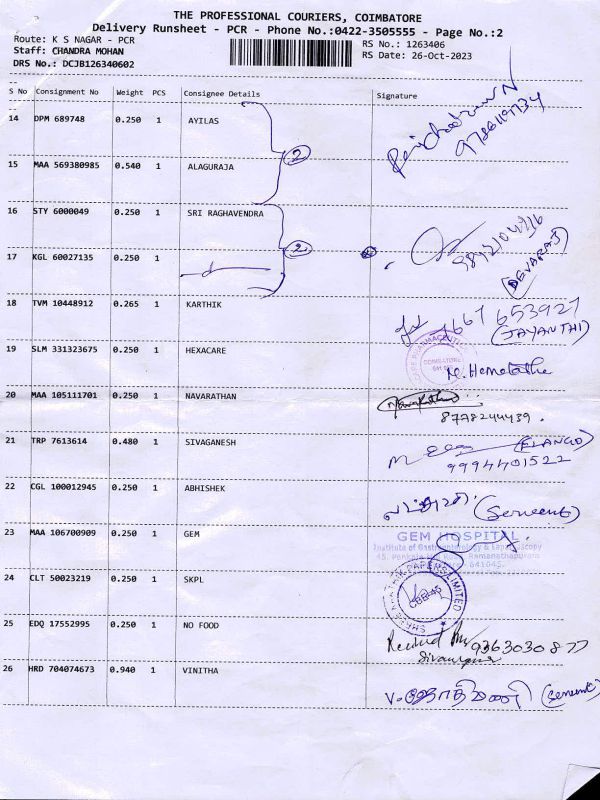 THE PROFESSIONAL COURIERS, COIMBATORE
Delivery Runsheet - PCR - Phone No.:0422-3505555 - Page No.:2
Route: K S NAGAR - PCR
Staff: CHANDRA MOHAN
DRS No.: DCJB126340602
RS No.: 1263406
RS Date: 26-Oct-2023
S No Consignment No Weight PCS Consignee Details Signature
14 DPM 689748 0.250 1 AYILAS
2
9786119734
15 MAA 569380985 0.540 1 ALAGURAJA
16 STY 6000049 0.250 1 SRI RAGHAVENDRA
2
(DEVARAJ)
17 KGL 60027135 0.250 1
18 TVM 10448912 0.265 1 KARTHIK
7667 653927
(JAYANTHI)
19 SLM 331323675 0.250 1 HEXACARE
COIMBATORE
20 MAA 105111701 0.250 1 NAVARATHAN
8778244439.
21 TRP 7613614 0.480 1 SIVAGANESH
(ELANGO)
9994401522
22 CGL 100012945 0.250 1 ABHISHEK
(Servent)
23 MAA 106700909 0.250 1 GEM
GEM HOSPITAL
Institute of Gastroenterology & Laparoscopy
45, Pankaja Mill Road, Ramanathapuram
24 CLT 50023219 0.250 1 SKPL
25 EDQ 17552995 0.250 1 NO FOOD
Received By
9363030877
26 HRD 704074673 0.940 1 VINITHA
V. ஜோதிமணி (servent)